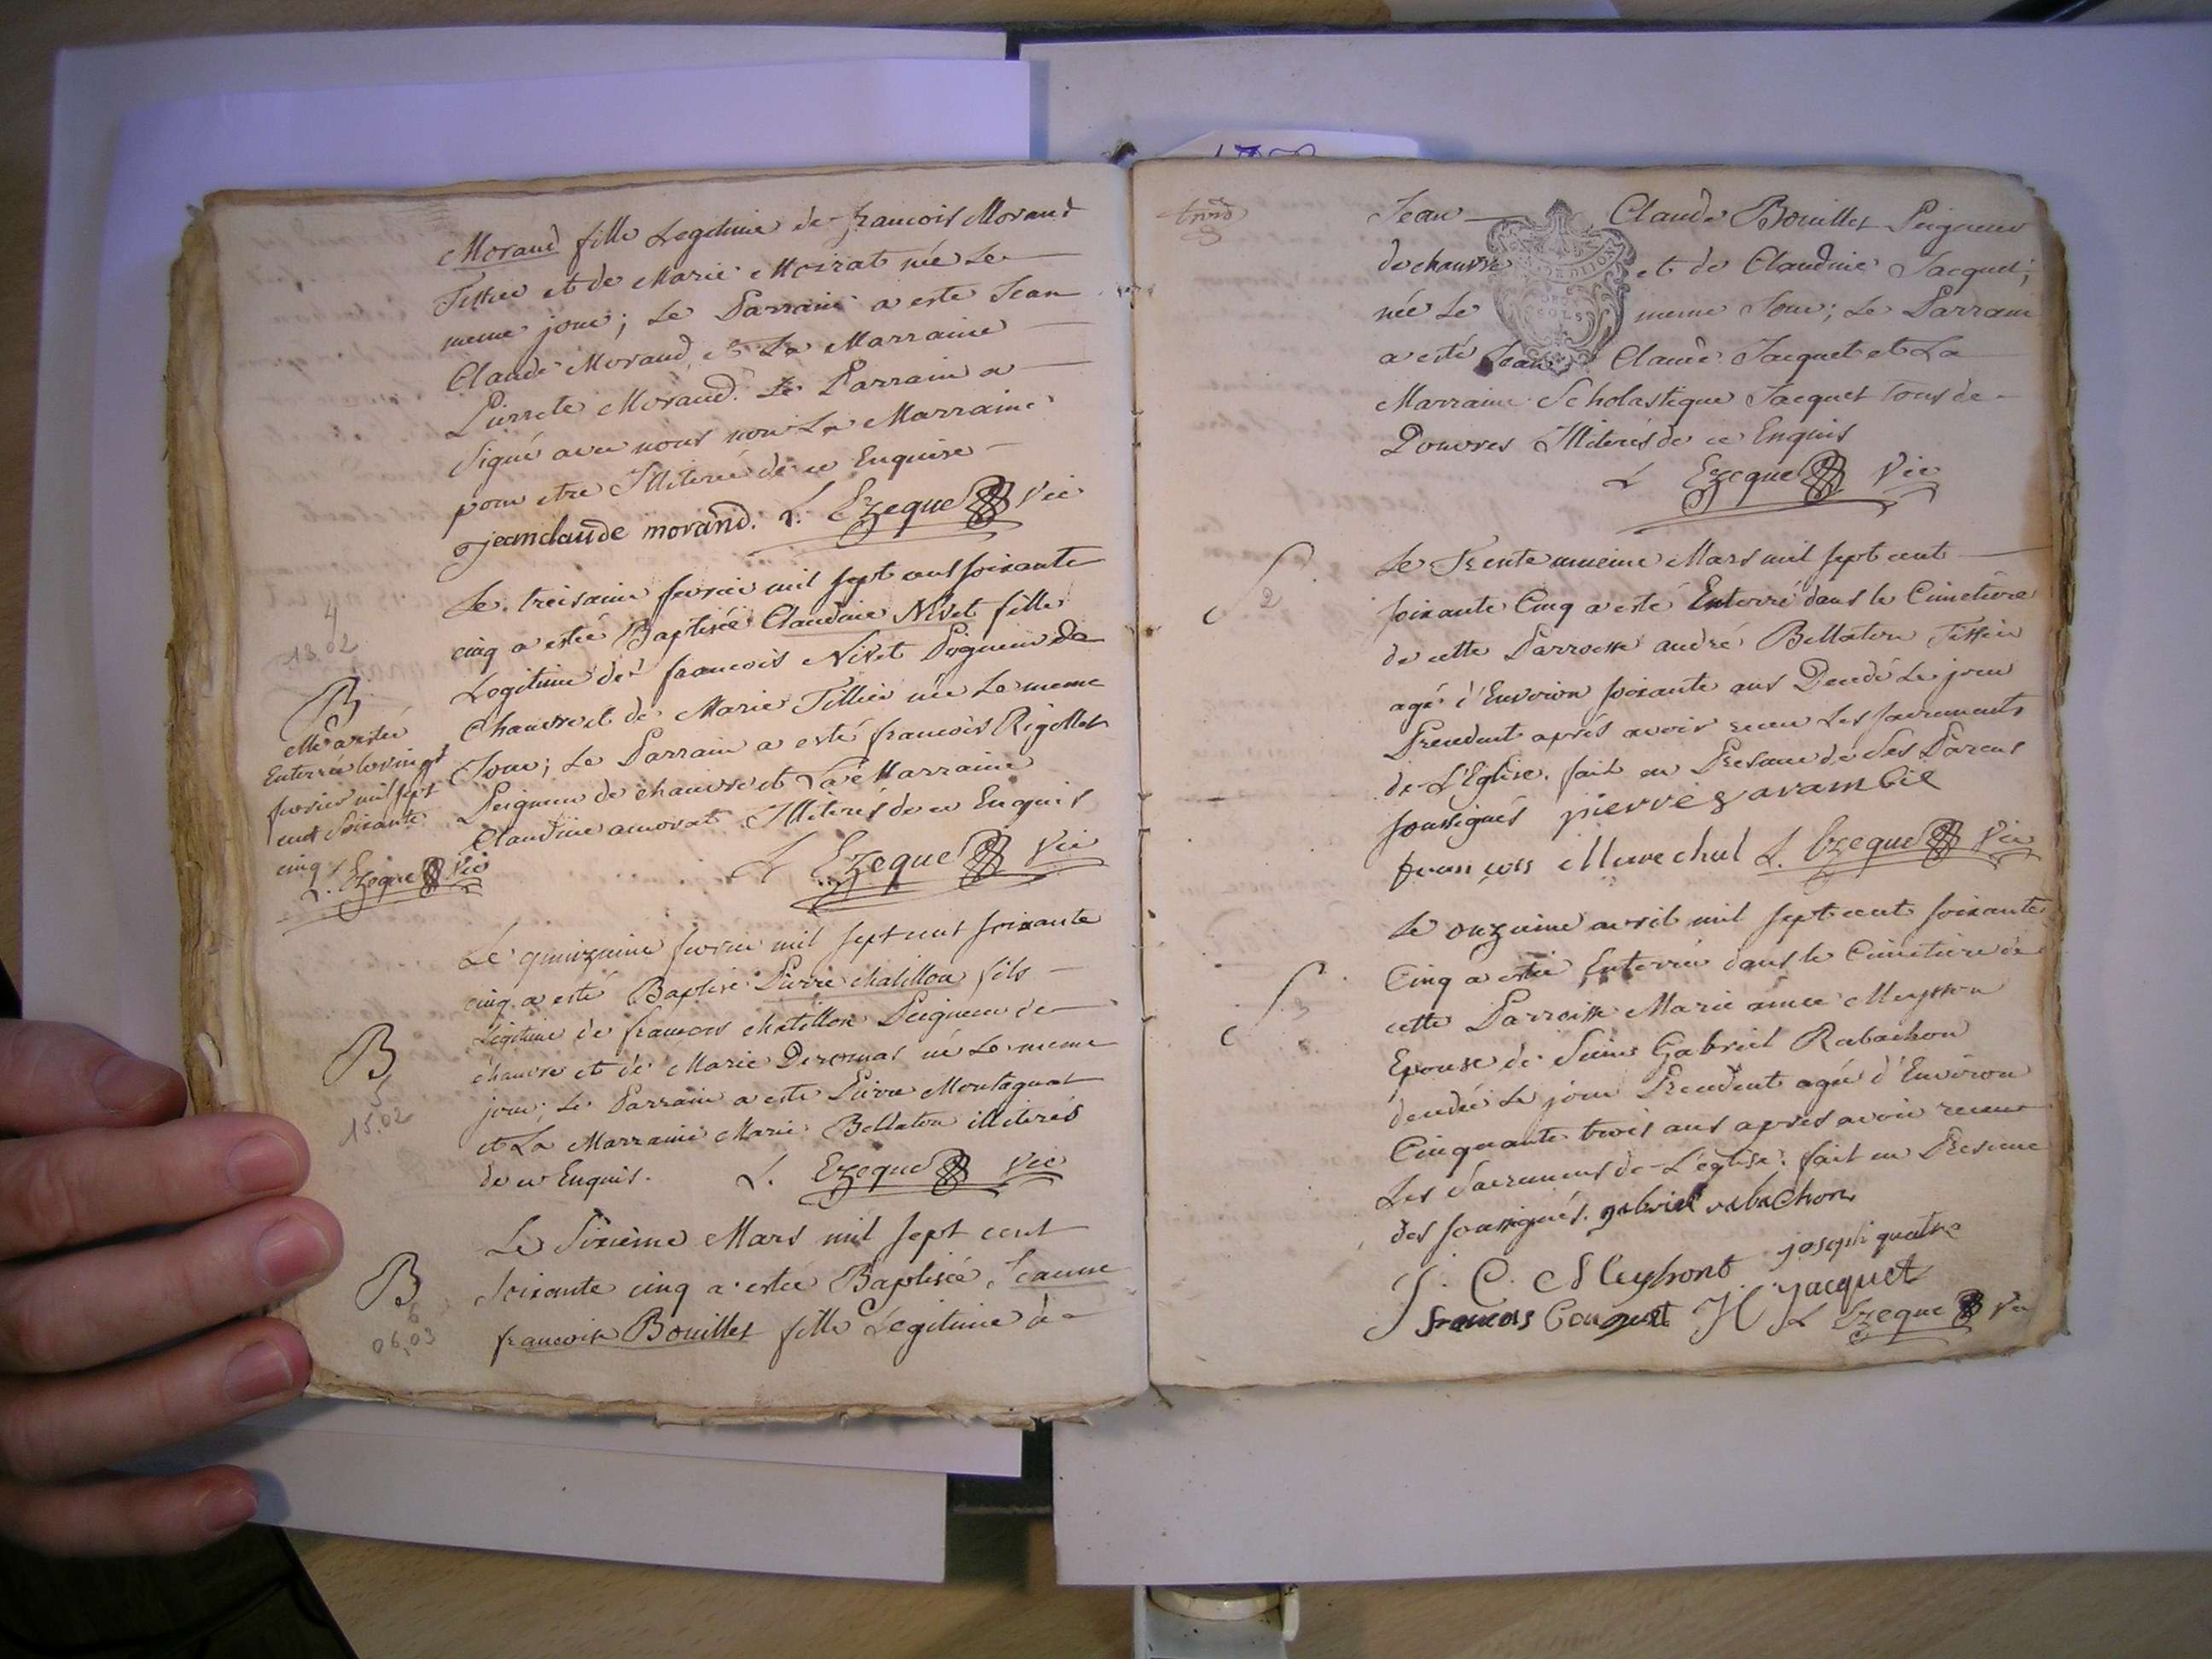 Morand fille Legitime de francois Morand
Tissier et de Marie Moirat née Le
meme jour; Le Parrain a esté Jean
Claude Morand et La Marraine
Pierrete Morand. Le Parrain a
signé avec nous non La Marraine
pour etre Illiterée de ce Enquise
jeanclaude morand. L. Ezeque Vic
4
13.02
B
elle a estée
Enterrée le vingt
fevrier mil sept
cent soixante
cinq
L. Ezeque Vic
Le treisaine fevrier mil sept cent soixante
cinq a estée Baptisée Claudine Nivet fille
Legitime de francois Nivet Peigneur de
Chanvre et de Marie Tillier née Le meme
Jour; Le Parrain a esté francois Rigollet
Peigneur de chanvre et La Marraine
Claudine Illiterés de ce Enquis
L Ezeque Vic
B
5
15.02
Le quinzaine fevrier mil sept cent soixante
cinq a esté Baptisé Pierre chatillon fils
Légitime de francois chatillon Peigneur de
chanvre et de Marie né Le meme
jour; Le Parrain a este Pierre Montagnat
et La Marraine Marie Bellaton illiterés
de ce Enquis. L. Ezeque Vic
B
6
06,03
Le Sixième Mars mil sept cent
Soixante cinq a estée Baptisée Jeanne
francoise Bouillet fille Legitime de
Jean Claude Bouillet Peigneur
de chanvre et de Claudine Jacquet;
née Le meme Jour; Le Parrain
a esté Jean Claude Jacquet et La
Marraine Scholastique Jacquet tous de
Douvres Illiterés de ce Enquis
L Ezeque Vic
S.
2
Le Trente unieme Mars mil sept cent
soixante Cinq a esté Enterré dans le Cimetiere
de cette Parroisse andré Bellaton Tissier
agé d'Environ soixante ans Décédé Le jour
Précédent aprés avoir receu Les sacrements
de L'Eglise. fait en Presence de Ses Parens
soussignés pierre
francois Marechal L. Ezeque Vic
S.
3
Le onzaine avril mil sept cent soixante
Cinq a estée Enterrée dans le Cimetiere de
cette Parroisse Marie aimée Meysson
Epouse de Gabriel Rabachon
décédée Le jour Précédent agée d'Environ
Cinquante trois ans apres avoir receu
Les Sacremens de L'eglise. fait en Presence
des soussignés. gabriel rabachon
J. C. Meyssont joseph quatre
francois Conquet H Jacquet
L Ezeque Vic